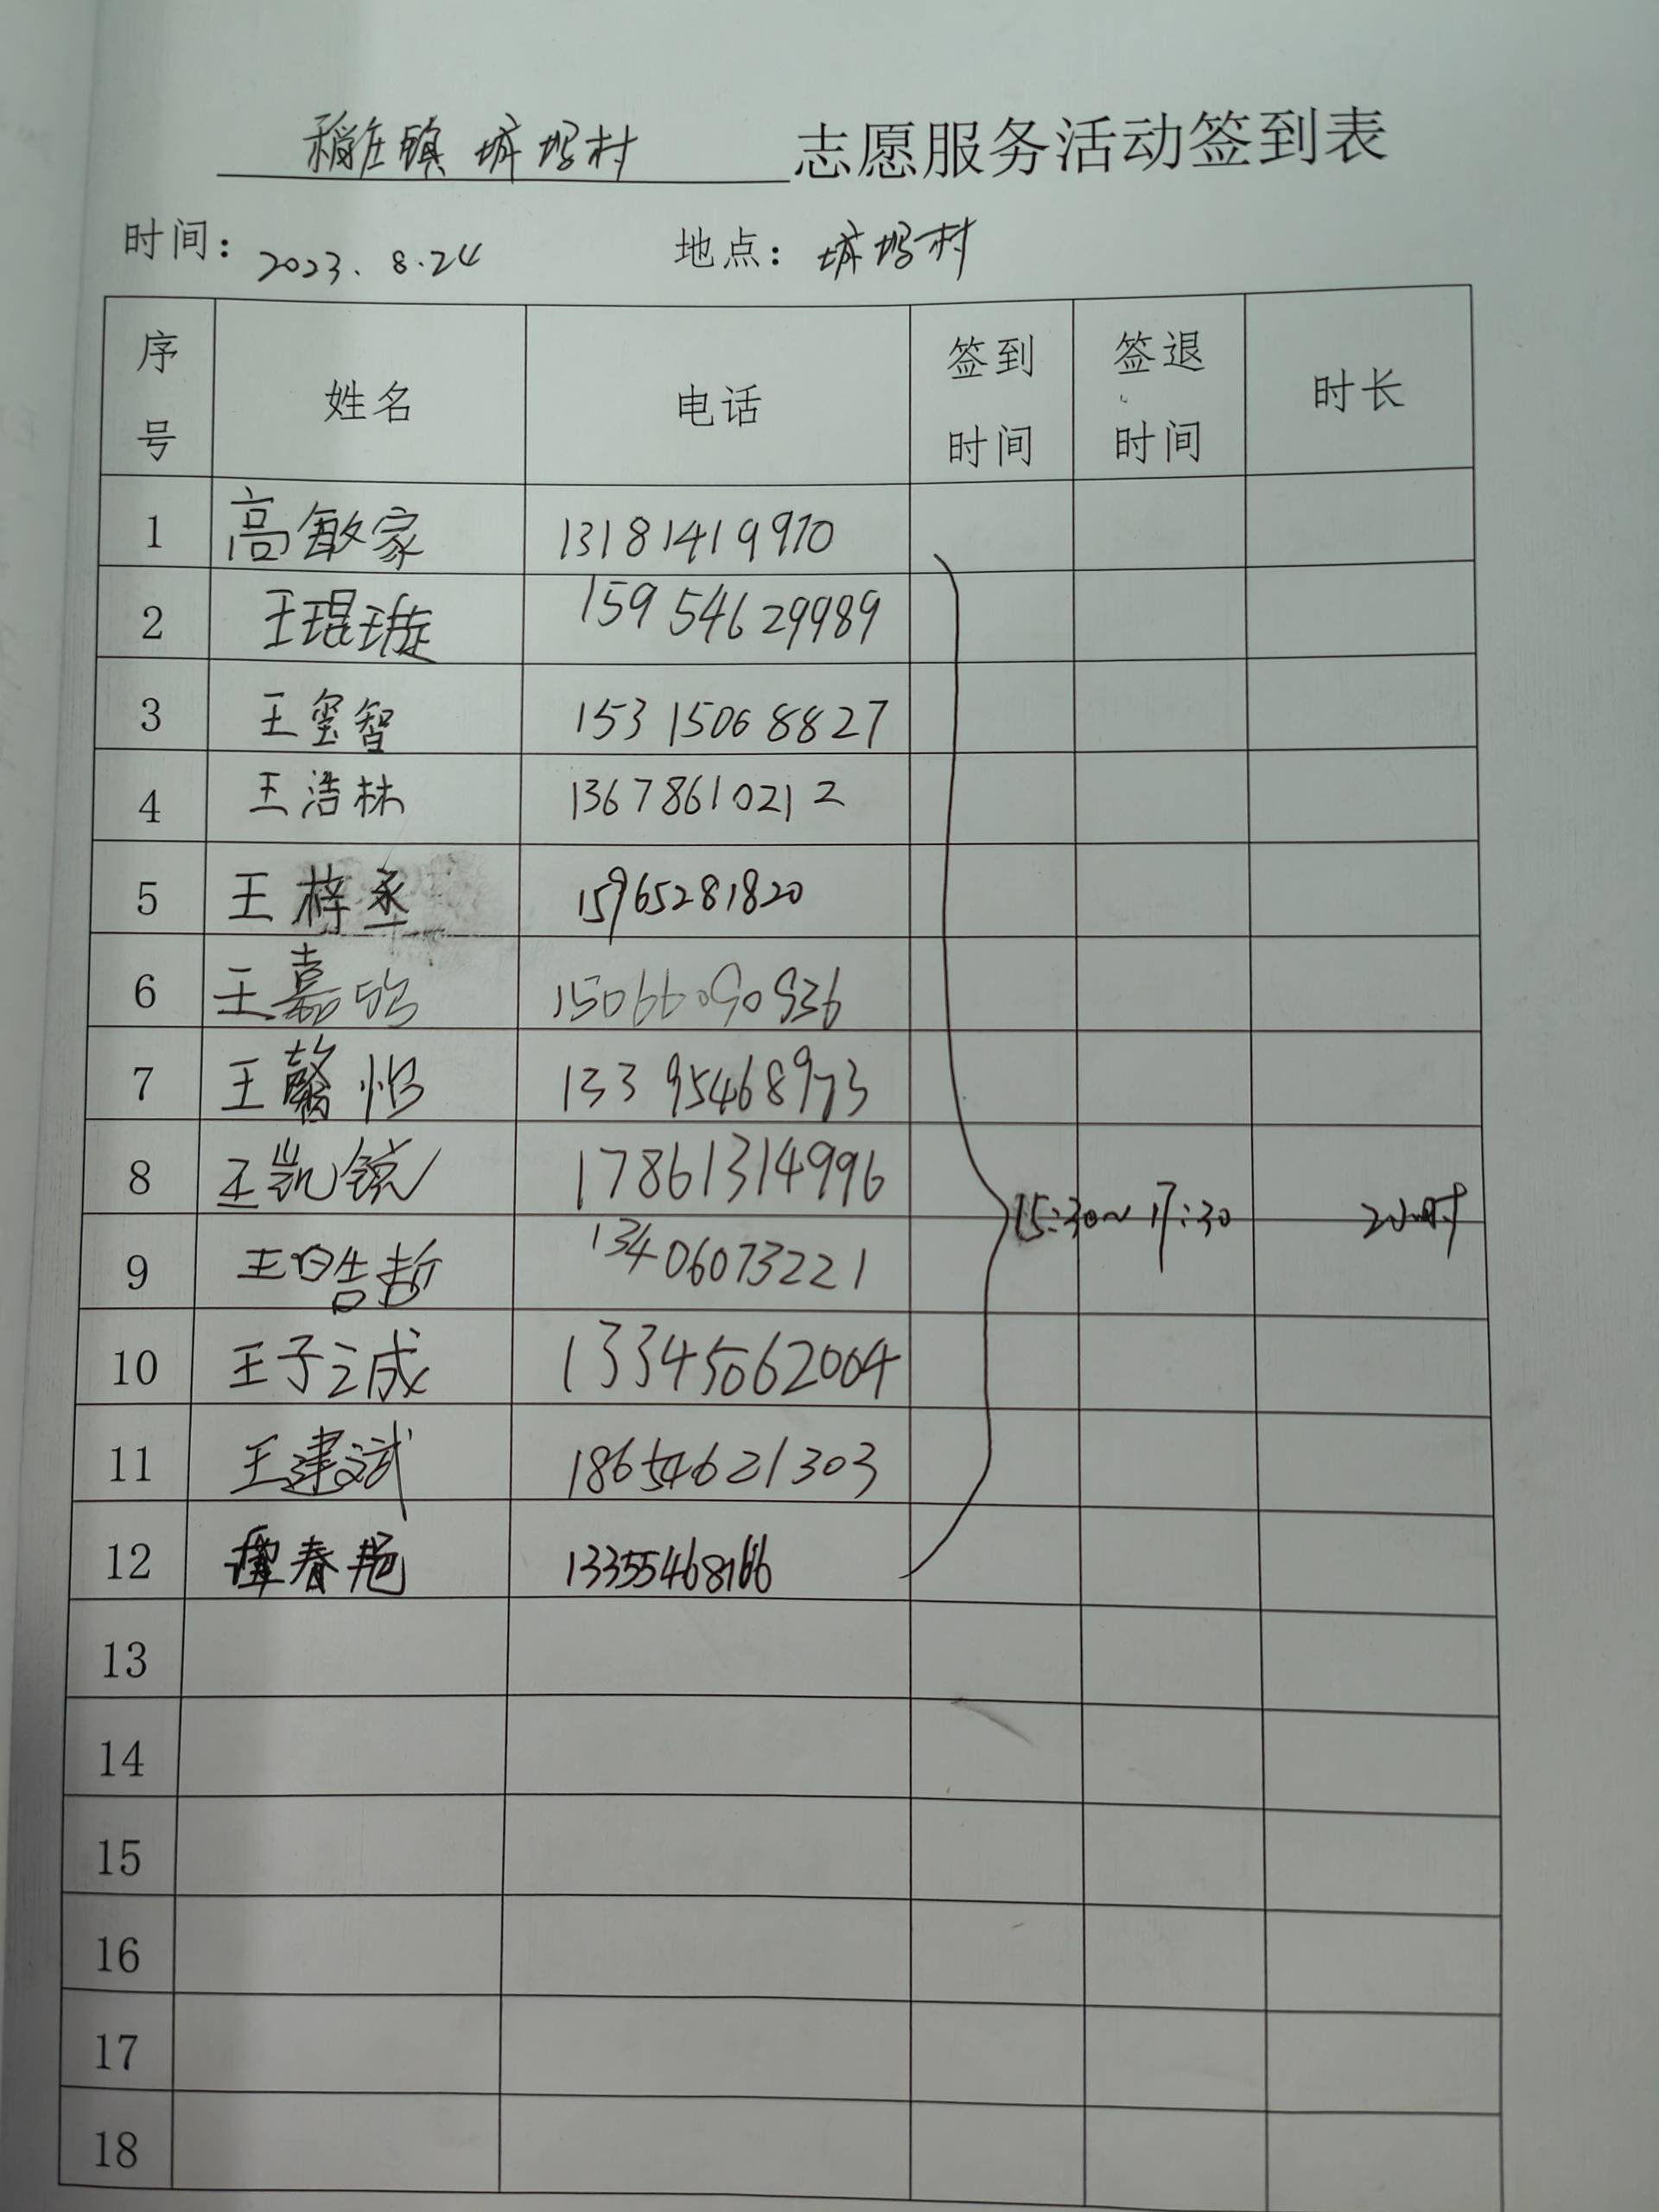 稻庄镇 坡村 志愿服务活动签到表
时间：2023.8.24 地点：村
序号 姓名 电话 签到时间 签退时间 时长
1 高敏家 13181419970
2 王琨璇 15954629989
3 王玺智 15315068827
4 王浩林 13678610212
5 王梓丞 15965281820
6 王嘉 15066090936
7 王馨怡 13395468973
8 王凯锐 17861314996
15:30~17:30 2小时
9 王皓哲 13406073221
10 王子诚 13345062004
11 王建斌 18654621303
12 春艳
13
14
15
16
17
18